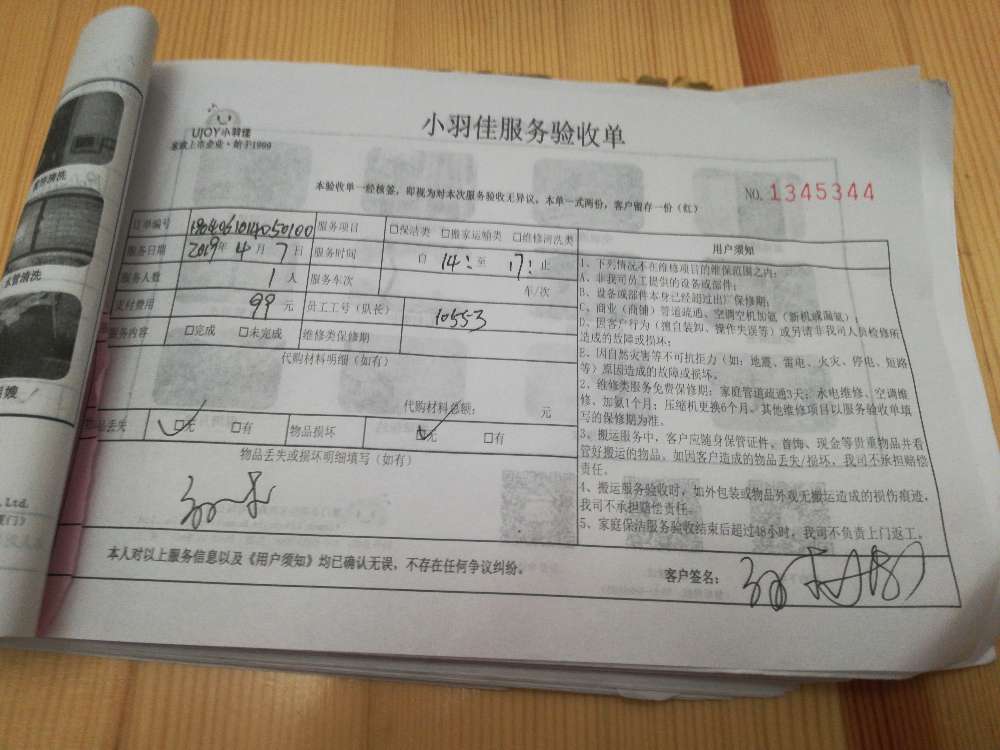 UJOY小羽佳
家政上市企业·始于1999
小羽佳服务验收单
本验收单一经核签，即视为对本次服务验收无异议，本单一式两份，客户留存一份（红）
NO. 1345344
订单编号 服务项目 □保洁类 □搬家运输类 □维修清洗类
服务日期 2019年 4月 7日 服务时间 自 14: 至 17: 止
服务人数 1 人 服务车次 车/次
支付费用 99 元 员工工号（队长） 10553
服务内容 □完成 □未完成 维修类保修期
代购材料明细（如有）
代购材料总额： 元
物品丢失 □无 □有 物品损坏 □无 □有
物品丢失或损坏明细填写（如有）
用户须知
1、下列情况不在维修项目的维保范围之内：
A、非我司员工提供的设备或部件；
B、设备或部件本身已经超过出厂保修期；
C、商业（商铺）管道疏通、空调空机加氨（新机或漏氨）；
D、因客户行为（擅自装卸、操作失误等）或另请非我司人员检修所
造成的故障或损坏；
E、因自然灾害等不可抗拒力（如：地震、雷电、火灾、停电、短路
等）原因造成的故障或损坏。
2、维修类服务免费保修期：家庭管道疏通3天；水电维修、空调维
修、加氨1个月；压缩机更换6个月。其他维修项目以服务验收单填
写的保修期为准。
3、搬运服务中，客户应随身保管证件、首饰、现金等贵重物品并看
管好搬运的物品。如因客户造成的物品丢失/损坏，我司不承担赔偿
责任。
4、搬运服务验收时，如外包装或物品外观无搬运造成的损伤痕迹，
我司不承担赔偿责任。
5、家庭保洁服务验收结束后超过48小时，我司不负责上门返工。
本人对以上服务信息以及《用户须知》均已确认无误，不存在任何争议纠纷。
客户签名：
水管清洗
Ltd.